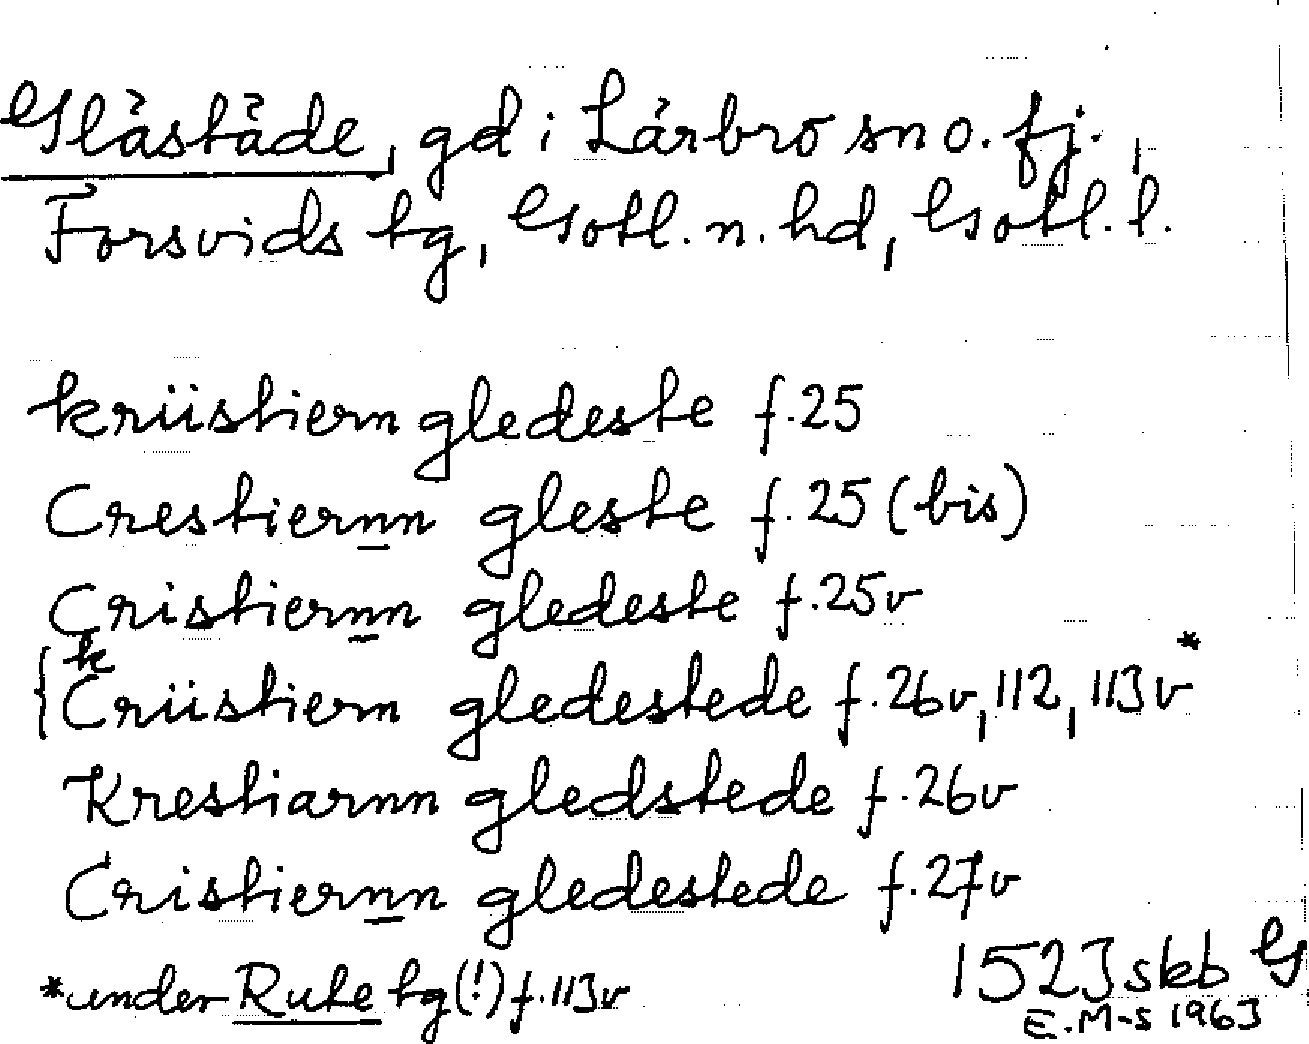 Glästäde, gd i Lärbro sn o. fj.,
Forsvids tg, Gotl. n. hd, Gotl. l.
krüstiern gledeste f.25
Crestiernn gleste f.25 (bis)
Cristiernn gledeste f.25v
{k
Crüstiern gledestede f.26v, 112, 113v*
Krestiarnn gledstede f.26v
Cristiernn gledestede f.27v
*under Rute tg(!) f.113v
1523 skb G
E.M-S 1963